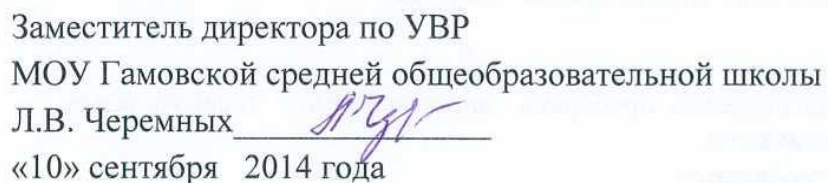 Заместитель директора по УВР
МОУ Гамовской средней общеобразовательной школы
Л.В. Черемных_________________
«10» сентября 2014 года